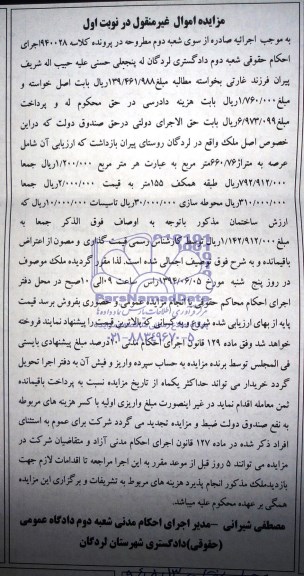 مزایده اموال غیرمنقول در نوبت اول
به موجب اجرائیه صادره از سوی شعبه دوم مطروحه در پرونده کلاسه ۹۴۰۰۲۸اجرای
احکام حقوقی شعبه دوم دادگستری لردگان له پنجعلی حسنی علیه حبیب اله شریف
پیران فرزند غارتی بخواسته مطالبه مبلغ۱۳۹/۴۶۱/۹۸۸ریال بابت اصل خواسته و
مبلغ۱/۷۶۰/۰۰۰ریال بابت هزینه دادرسی در حق محکوم له و پرداخت
مبلغ۶/۹۷۳/۰۹۹ریال بابت حق الاجرای دولتی درحق صندوق دولت که دراین
خصوص اصل ملک واقع در لردگان روستای پیران بازداشت که ارزیابی آن شامل
عرصه به متراژ۶۶۰/۷۶متر مربع به عبارت هر متر مربع ۱/۲۰۰/۰۰۰ریال جمعا
۷۹۲/۹۱۲/۰۰۰ریال طبقه همکف ۱۵۵متر به قیمت ۲/۰۰۰/۰۰۰ریال جمعا
۳۱۰/۰۰۰/۰۰۰ریال محوطه سازی ۳۰/۰۰۰/۰۰۰ریال تاسیسات ۱۰/۰۰۰/۰۰۰ریال که
ارزش ساختمان مذکور باتوجه به اوصاف فوق الذکر جمعا به
مبلغ۱/۱۴۲/۹۱۲/۰۰۰ریال توسط کارشناس رسمی قیمت گذاری و مصون از اعتراض
باقیمانده و به شرح فوق توصیف اجمالی شده است. لذا مقرر گردیده ملک موصوف
در روز پنج شنبه مورخ ۱۳۹۴/۰۶/۰۵راس ساعت ۰۹الی ۱۰صبح در محل دفتر
اجرای احکام محاکم حقوقی با انجام مزایده عمومی و حضوری بفروش برسد قیمت
پایه از بهای ارزیابی شده شروع و به کسانی که بالاترین قیمت را پیشنهاد نمایند فروخته
خواهد شد وفق ماده ۱۲۹ قانون اجرای احکام مدنی ۱۰درصد مبلغ پیشنهادی بایستی
فی المجلس توسط برنده مزایده به حساب سپرده واریز و فیش آن به دفتر اجرا تحویل
گردد خریدار می تواند حداکثر یکماه از تاریخ مزایده نسبت به پرداخت باقیمانده
ثمن معامله اقدام نماید در غیر اینصورت مبلغ واریزی اولیه با کسر هزینه های مربوطه
به نفع صندوق دولت ضبط و مزایده تجدید می گردد شرکت برای عموم به استثنای
افراد ذکر شده در ماده ۱۲۷ قانون اجرای احکام مدنی آزاد و متقاضیان شرکت در
مزایده می توانند ۵ روز قبل از موعد مقرر به این اجرا مراجعه تا اقدامات لازم جهت
بازدیدملک مذکور انجام پذیرد هزینه های مربوط به تشریفات و برگزاری این مزایده
همگی بر عهده محکوم علیه میباشد.
مصطفی شیرانی -مدیر اجرای احکام مدنی شعبه دوم دادگاه عمومی
(حقوقی)دادگستری شهرستان لردگان
ParsNamadData
۰۲۱-۸۸۳۴۹۶۷۰-۵